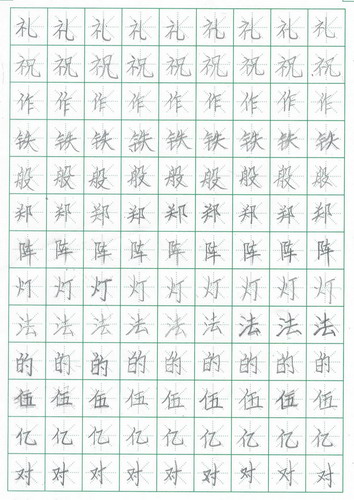 礼礼礼礼礼礼礼礼礼
祝祝祝祝祝祝祝祝祝
作作作作作作作作作
铁铁铁铁铁铁铁铁铁
般般般般般般般般般
郑郑郑郑郑郑郑郑郑
阵阵阵阵阵阵阵阵阵
灯灯灯灯灯灯灯灯灯
法法法法法法法法法
的的的的的的的的的
伍伍伍伍伍伍伍伍伍
亿亿亿亿亿亿亿亿亿
对对对对对对对对对